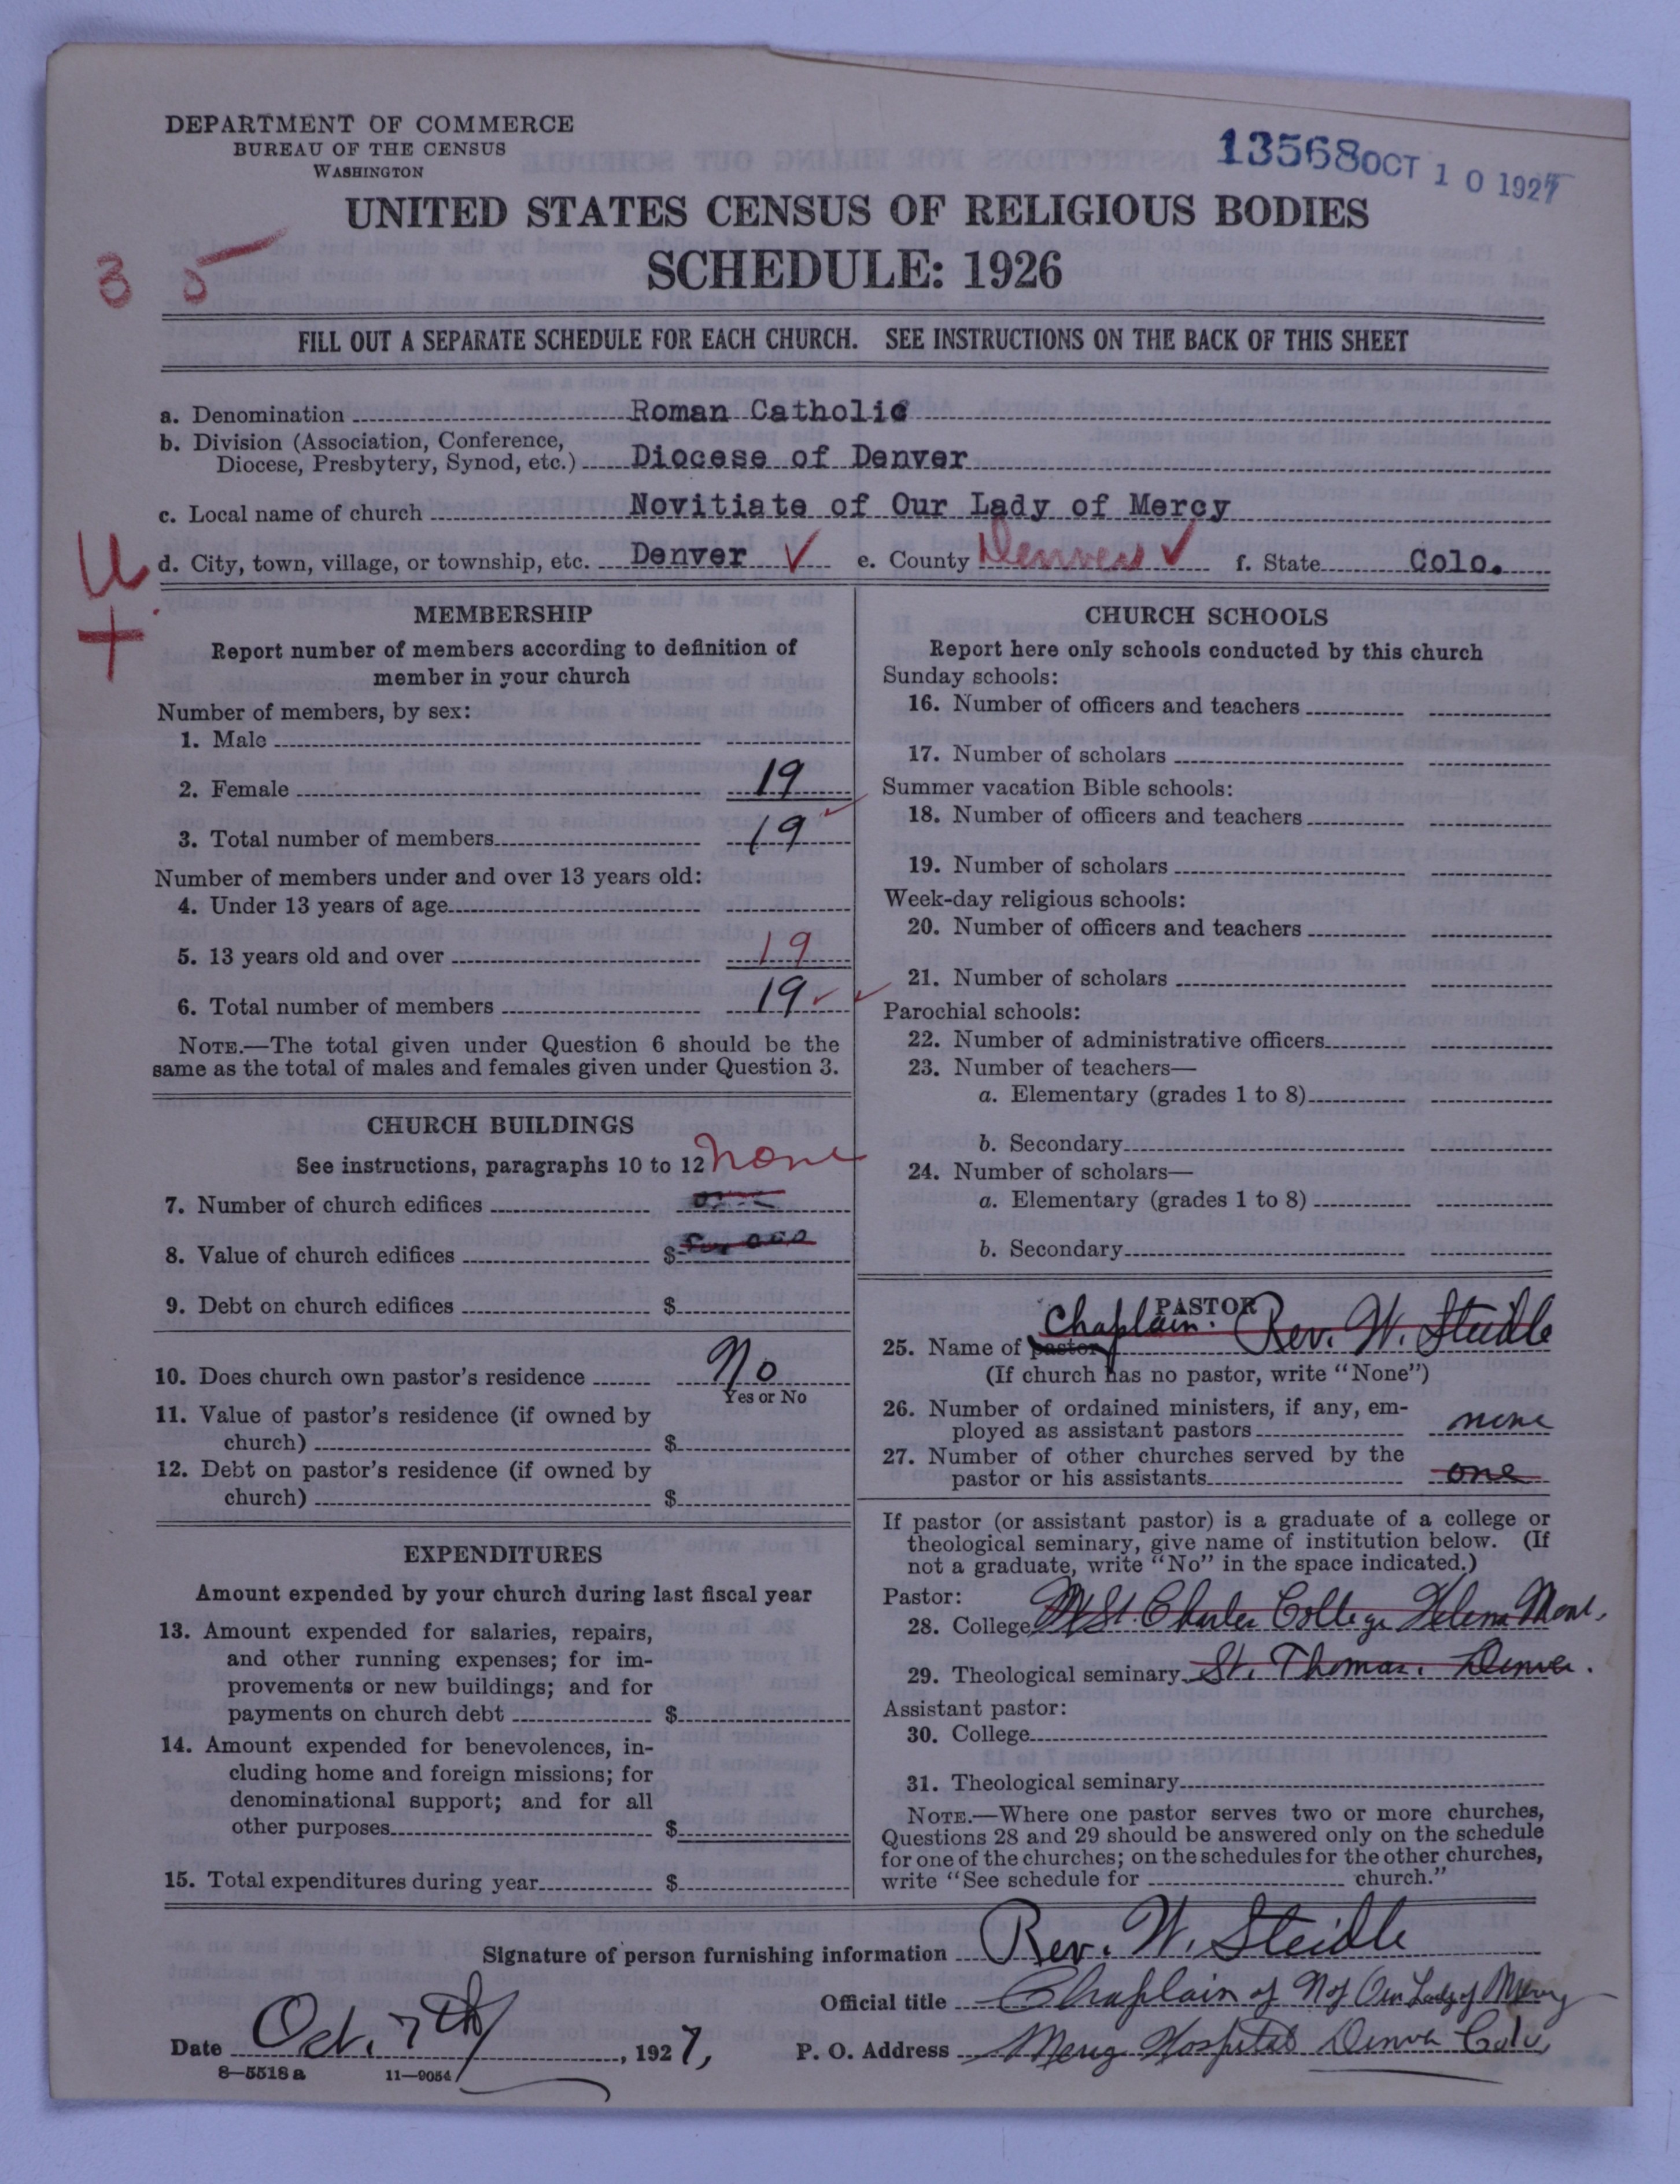 DEPARTMENT OF COMMERCE
BUREAU OF THE CENSUS
WASHINGTON
13568 OCT 10 1927
UNITED STATES CENSUS OF RELIGIOUS BODIES
SCHEDULE: 1926
3 5
FILL OUT A SEPARATE SCHEDULE FOR EACH CHURCH. SEE INSTRUCTIONS ON THE BACK OF THIS SHEET
a. Denomination Roman Catholic
b. Division (Association, Conference,
Diocese, Presbytery, Synod, etc.) Diocese of Denver
c. Local name of church Novitiate of Our Lady of Mercy
d. City, town, village, or township, etc. Denver e. County Denver f. State Colo.
MEMBERSHIP
Report number of members according to definition of
member in your church
Number of members, by sex:
1. Male
2. Female 19
3. Total number of members 19
Number of members under and over 13 years old:
4. Under 13 years of age
5. 13 years old and over 19
6. Total number of members 19
NOTE.—The total given under Question 6 should be the
same as the total of males and females given under Question 3.
CHURCH BUILDINGS
See instructions, paragraphs 10 to 12 none
7. Number of church edifices
8. Value of church edifices $
9. Debt on church edifices $
10. Does church own pastor's residence No
Yes or No
11. Value of pastor's residence (if owned by
church) $
12. Debt on pastor's residence (if owned by
church) $
EXPENDITURES
Amount expended by your church during last fiscal year
13. Amount expended for salaries, repairs,
and other running expenses; for im-
provements or new buildings; and for
payments on church debt $
14. Amount expended for benevolences, in-
cluding home and foreign missions; for
denominational support; and for all
other purposes $
15. Total expenditures during year $
CHURCH SCHOOLS
Report here only schools conducted by this church
Sunday schools:
16. Number of officers and teachers
17. Number of scholars
Summer vacation Bible schools:
18. Number of officers and teachers
19. Number of scholars
Week-day religious schools:
20. Number of officers and teachers
21. Number of scholars
Parochial schools:
22. Number of administrative officers
23. Number of teachers—
a. Elementary (grades 1 to 8)
b. Secondary
24. Number of scholars—
a. Elementary (grades 1 to 8)
b. Secondary
PASTOR
25. Name of pastor Chaplain. Rev. W. Steidle
(If church has no pastor, write "None")
26. Number of ordained ministers, if any, em-
ployed as assistant pastors none
27. Number of other churches served by the
pastor or his assistants one
If pastor (or assistant pastor) is a graduate of a college or
theological seminary, give name of institution below. (If
not a graduate, write "No" in the space indicated.)
Pastor:
28. College Mt St. Charles College Helena Mont.
29. Theological seminary St. Thomas. Denver.
Assistant pastor:
30. College
31. Theological seminary
NOTE.—Where one pastor serves two or more churches,
Questions 28 and 29 should be answered only on the schedule
for one of the churches; on the schedules for the other churches,
write "See schedule for church."
Signature of person furnishing information Rev. W. Steidle
Official title Chaplain of N of Our Lady of Mercy
Date Oct. 7th, 1927, P. O. Address Mercy Hospital Denver Colo,
8—5518a 11—9054